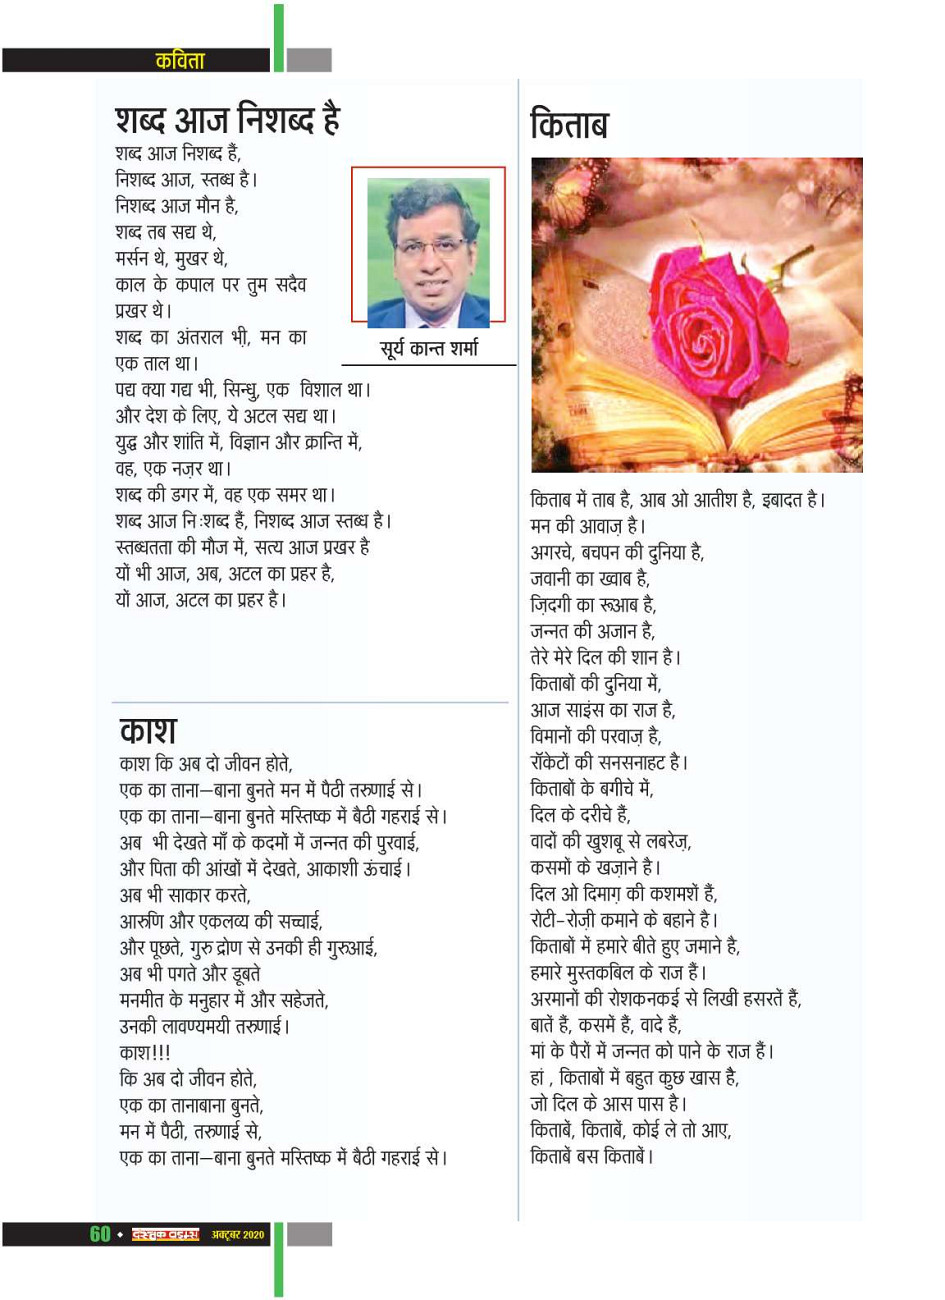 कविता
शब्द आज निशब्द है
शब्द आज निशब्द हैं,
निशब्द आज, स्तब्ध है।
निशब्द आज मौन है,
शब्द तब सद्य थे,
मर्सन थे, मुखर थे,
काल के कपाल पर तुम सदैव
प्रखर थे।
शब्द का अंतराल भी, मन का
एक ताल था।
पद्य क्या गद्य भी, सिन्धु, एक विशाल था।
और देश के लिए, ये अटल सद्य था।
युद्ध और शांति में, विज्ञान और क्रान्ति में,
वह, एक नज़र था।
शब्द की डगर में, वह एक समर था।
शब्द आज निःशब्द हैं, निशब्द आज स्तब्ध है।
स्तब्धतता की मौज में, सत्य आज प्रखर है
यों भी आज, अब, अटल का प्रहर है,
यों आज, अटल का प्रहर है।
सूर्य कान्त शर्मा
काश
काश कि अब दो जीवन होते,
एक का ताना–बाना बुनते मन में पैठी तरुणाई से।
एक का ताना–बाना बुनते मस्तिष्क में बैठी गहराई से।
अब भी देखते माँ के कदमों में जन्नत की पुरवाई,
और पिता की आंखों में देखते, आकाशी ऊंचाई।
अब भी साकार करते,
आरुणि और एकलव्य की सच्चाई,
और पूछते, गुरु द्रोण से उनकी ही गुरुआई,
अब भी पगते और डूबते
मनमीत के मनुहार में और सहेजते,
उनकी लावण्यमयी तरुणाई।
काश!!!
कि अब दो जीवन होते,
एक का तानाबाना बुनते,
मन में पैठी, तरुणाई से,
एक का ताना–बाना बुनते मस्तिष्क में बैठी गहराई से।
किताब
किताब में ताब है, आब ओ आतीश है, इबादत है।
मन की आवाज़ है।
अगरचे, बचपन की दुनिया है,
जवानी का ख्वाब है,
ज़िदगी का रूआब है,
जन्नत की अजान है,
तेरे मेरे दिल की शान है।
किताबों की दुनिया में,
आज साइंस का राज है,
विमानों की परवाज़ है,
रॉकेटों की सनसनाहट है।
किताबों के बगीचे में,
दिल के दरीचे हैं,
वादों की खुशबू से लबरेज़,
कसमों के खज़ाने है।
दिल ओ दिमाग़ की कशमशें हैं,
रोटी-रोज़ी कमाने के बहाने है।
किताबों में हमारे बीते हुए जमाने है,
हमारे मुस्तकबिल के राज हैं।
अरमानों की रोशकनकई से लिखी हसरतें हैं,
बातें हैं, कसमें हैं, वादे हैं,
मां के पैरों में जन्नत को पाने के राज हैं।
हां , किताबों में बहुत कुछ खास है,
जो दिल के आस पास है।
किताबें, किताबें, कोई ले तो आए,
किताबें बस किताबें।
60 • अक्टूबर 2020